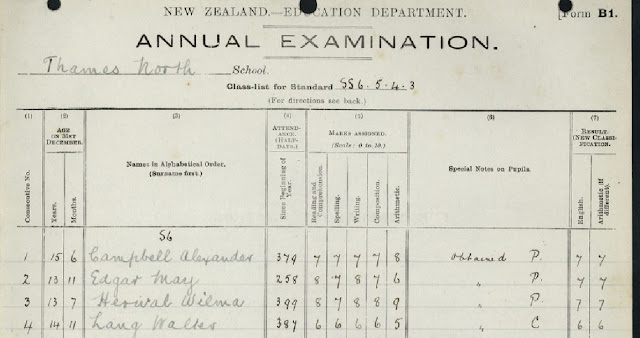 NEW ZEALAND.—EDUCATION DEPARTMENT. [Form B1.
ANNUAL EXAMINATION.
Thames North School.
Class-list for Standard SS6.5.4.3
(For directions see back.)
(1) (2) (3) (4) (5) (6) (7)
Consecutive No. AGE ON 31ST DECEMBER. Years. Months. Names in Alphabetical Order. (Surname first.) ATTENDANCE. (HALF-DAYS.) Since Beginning of Year. MARKS ASSIGNED. (Scale: 0 to 10.) Reading and Comprehension. Spelling. Writing. Composition. Arithmetic. Special Notes on Pupils. RESULT. (NEW CLASSIFICATION. English. Arithmetic (if different).
S6
1 15 6 Campbell Alexander 379 7 7 7 7 8 obtained P. 7 7
2 13 11 Edgar May 258 8 7 8 7 6 " P. 7 7
3 13 7 Herival Wilma 399 8 7 8 8 9 " P. 7 7
4 14 11 Lang Walter 387 6 6 6 6 5 " C 6 6